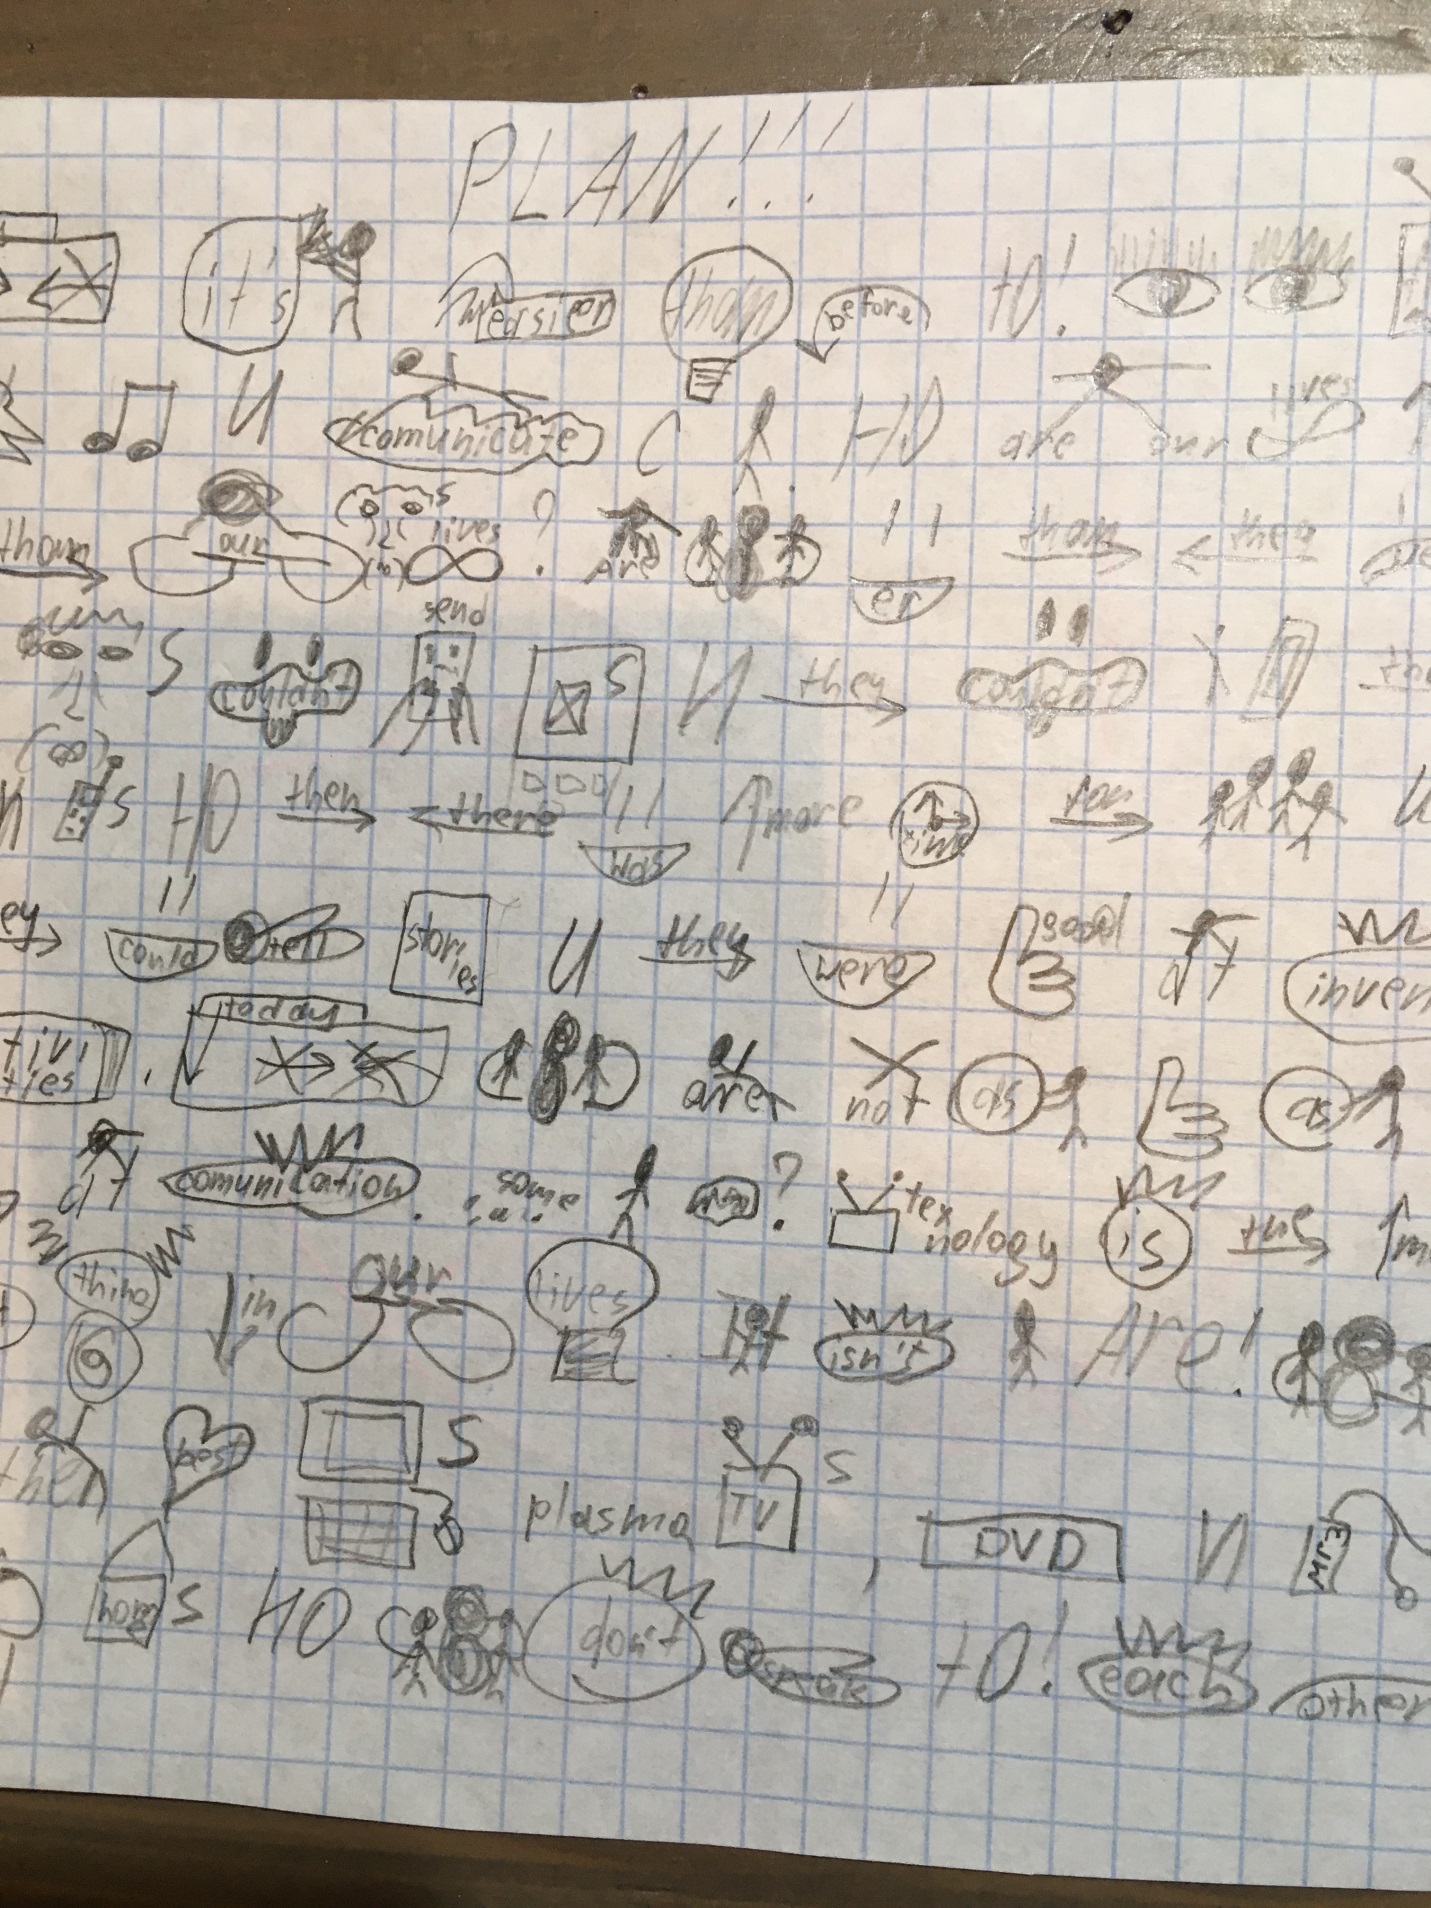 PLAN!!!
it's easier than before to!
и comunicate с но are our lives
than our s lives? are er than they
s couldn't send s и they couldn't
и s но then there was more time for и
ey could tell stories и they were good at inven
tivi
ties. today are not as as
at comunication. some ? tex
nology is the ↑m
thing in our lives. It isn't Are!
ther best s plasma TV s, DVD и MP3
home s но don't speak to! each other